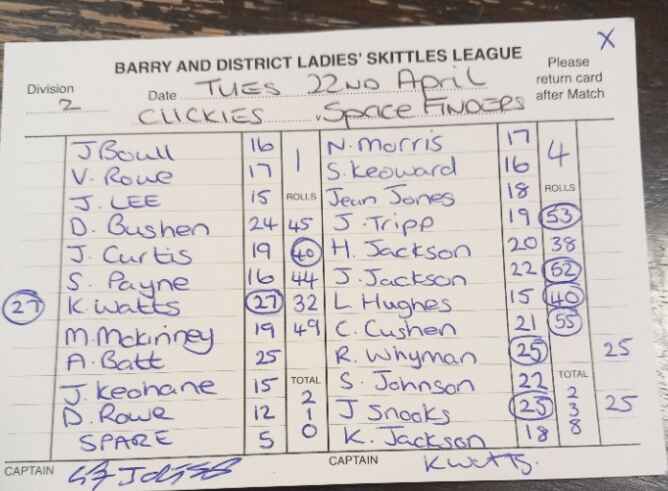 X
BARRY AND DISTRICT LADIES' SKITTLES LEAGUE
Please return card after Match
Division 2
Date TUES 22ND April
CLICKIES v. Space FINDERS
J Boull 16 1 N. Morris 17 4
V. Rowe 17 S. Keoward 16
J. LEE 15 ROLLS Jean Jones 18 ROLLS
D. Bushen 24 45 J. Tripp 19 53
J. Curtis 19 40 H. Jackson 20 38
S. Payne 16 44 J. Jackson 22 52
27 K. Watts 27 32 L Hughes 15 40
M. Mckinney 19 49 C. Cushen 21 55
A. Batt 25 R. Whyman 25 25
J. Keohane 15 TOTAL 210 S. Johnson 22 TOTAL 238
D. Rowe 12 J Snooks 25 25
SPARE 5 K. Jackson 18
CAPTAIN CAPTAIN K Watts.